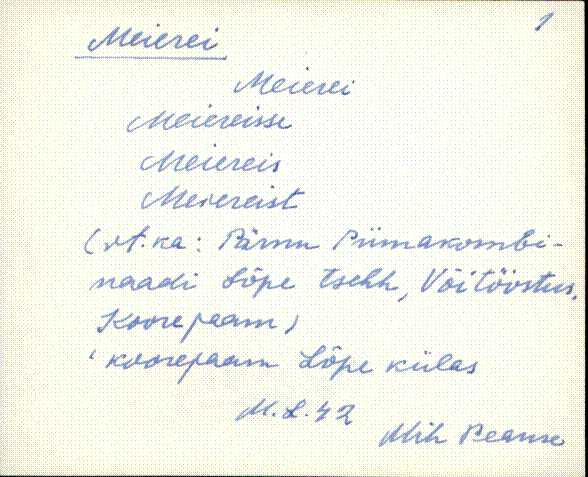 1
Meierei
Meierei
Meiereisse
Meiereis
Meiereist
(vt. ka: Pärnu Piimakombi-
naadi Lõpe tsehh, Võitööstus,
Koorejaam)
' koorejaam Lõpe külas
M. L. 42
Mih